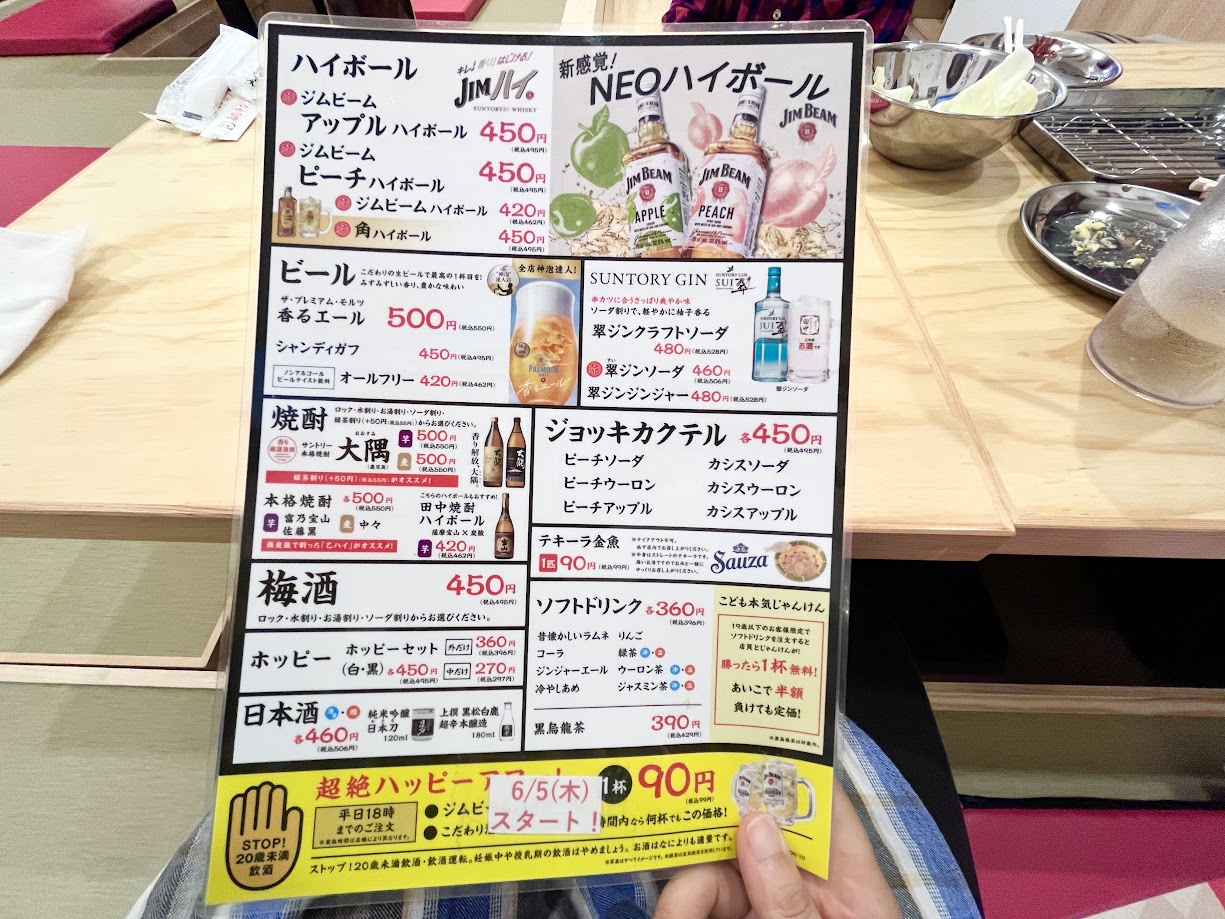 ハイボール
キレ!香り!はじける!
JIMハイ
SUNTORY WHISKY
ジムビーム
アップルハイボール 450円
(税込495円)
ジムビーム
ピーチハイボール 450円
(税込495円)
ジムビームハイボール 420円
(税込462円)
角ハイボール 450円
(税込495円)
新感覚!
NEOハイボール
JIM BEAM
JIM BEAM
APPLE
JIM BEAM
PEACH
ビール
こだわりの生ビールで最高の1杯目を!
みずみずしい香り、豊かな味わい
全店神泡達人!
ザ・プレミアム・モルツ
香るエール 500円(税込550円)
シャンディガフ 450円(税込495円)
ノンアルコール
ビールテイスト飲料
オールフリー 420円(税込462円)
PREMIUM
香るエール
SUNTORY GIN
SUNTORY GIN
SUI 翠
串カツに合うさっぱり爽やか味
ソーダ割りで、軽やかに柚子香る
翠ジンクラフトソーダ
480円(税込528円)
すい
翠ジンソーダ 460円
(税込506円)
翠ジンジンジャー 480円(税込528円)
SUNTORY GIN
SUI
田中
お酒です
翠ジンソーダ
焼酎
ロック・水割り・お湯割り・ソーダ割り・
緑茶割り(+50円(税込55円))からお選びください。
サントリー
本格焼酎
おおすみ
大隅
(鹿児島)
芋 500円
(税込550円)
麦 500円
(税込550円)
緑茶割り(+50円(税込55円))がオススメ!
香り解放、大隅。
本格焼酎 各500円
(税込550円)
芋 富乃宝山
佐藤黒
麦 中々
炭酸で割った「乙ハイ」がオススメ!
こちらのハイボールもおすすめ!
田中焼酎
ハイボール
薩摩宝山×炭酸
芋 420円
(税込462円)
ジョッキカクテル 各450円
(税込495円)
ピーチソーダ カシスソーダ
ピーチウーロン カシスウーロン
ピーチアップル カシスアップル
テキーラ金魚
1匹 90円(税込99円)
※テイクアウト不可。
必ず店内でお召し上がりください。
※中身はストレートのテキーラです。
強いお酒ですのでお水と一緒に
ゆっくりお召し上がりください。
Sauza
梅酒 450円
(税込495円)
ロック・水割り・お湯割り・ソーダ割りからお選びください。
ホッピー
ホッピーセット
(白・黒) 各450円
(税込495円)
外だけ 360円
(税込396円)
中だけ 270円
(税込297円)
日本酒 冷・温
各460円
(税込506円)
純米吟醸
日本刀
120ml
上撰 黒松白鹿
超辛本醸造
180ml
ソフトドリンク 各360円
(税込396円)
昔懐かしいラムネ りんご
コーラ 緑茶 冷・温
ジンジャーエール ウーロン茶 冷・温
冷やしあめ ジャスミン茶 冷・温
黒烏龍茶 390円
(税込429円)
こども本気じゃんけん
19歳以下のお客様限定で
ソフトドリンクを注文すると
店員とじゃんけんが!
勝ったら1杯無料!
あいこで半額
負けても定価!
※黒烏龍茶は対象外。
超絶ハッピーア
1杯 90円
(税込99円)
平日18時
までのご注文
●ジムビー
●こだわり
時間内なら何杯でもこの価格!
6/5(木)
スタート!
STOP!
20歳未満
飲酒
ストップ!20歳未満飲酒・飲酒運転。妊娠中や授乳期の飲酒はやめましょう。お酒はなによりも適量です。